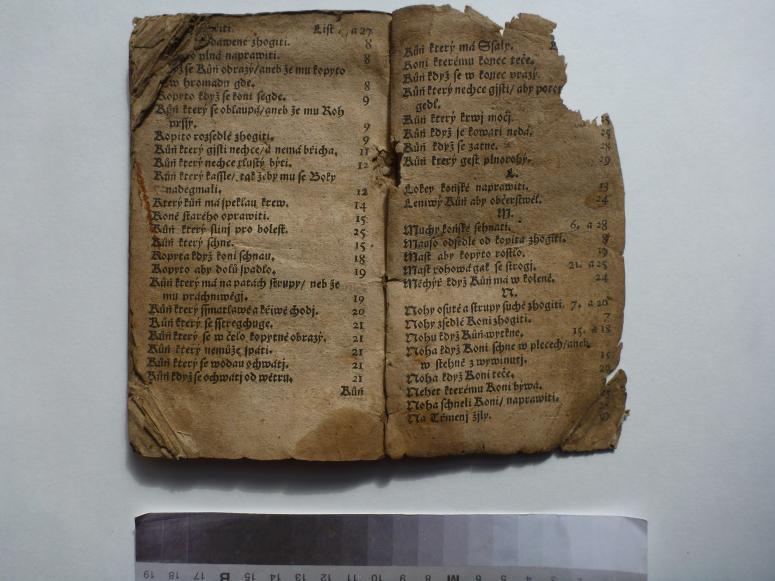 List . a 27
zhogiti. 8
plná naprawiti. 8
že se Kůň obrazý/ aneb že mu kopyto
w hromadu gde. 8
Kopyto když se koni segde. 9
Kůň který se obłaupá/ aneb že mu Roh
prssý. 9
Kopito rozsedlé zhogiti. 9
Kůň který gjsti nechce/ a nemá břicha. 11
Kůň který nechce tlustý býti. 12
Kůň který kassle/ tak žeby mu se Boky
nadegmali. 12
Který kůň má spekłau krew. 14
Koně starého oprawiti. 15
Kůň který slinj pro bolest. 25
Kůň který schne. 15
Kopyta když koni schnau. 18
Kopyto aby dolů spadło. 19
Kůň který má na patách strupy/ neb že
mu práchniwěgj. 19
Kůň který ssmatławě a křiwě chodj. 20
Kůň který se sstregchuge. 21
Kůň který se w čelo kopytné obrazý. 21
Kůň který nemůže spáti. 21
Kůň který se wodau ochwátj. 21
Kůň když se ochwátj od wětru. 21
Kůň
Kůň který má Ssaly.
Koni kterému konec teče.
Kůň když se w konec vrazý.
Kůň který nechce gjsti/ aby
gedl.
Kůň který krwj močj. 18
Kůň když je kowati nedá.
Kůň když se zatne. 28
Kůň který gest plnorohý. 29
L.
Lokey koňské naprawiti. 13
Leniwý Kůň aby občerstwěl. 24
M.
Muchy koňské sehnati. 6. a 28
Maaso odsedlé od kopita zhogiti. 8
Mast aby kopyto rostlo. 19
Mast rohowá gak se strogj. 21. a 25
Měchýř když Kůň má w koleně. 24
N.
Nohy osuté a strupy suché zhogiti. 7. a 26
Nohy zsedlé Koni zhogiti. 7
Nohu když Kůň wytkne. 15. a 18
Noha když Koni schne w plecech/ aneb
w stehně z wywinutj. 15
Noha když Koni teče.
Nehet kterému Koni bywá.
Noha schneli Koni/ naprawiti.
Na Témenj žjly.
19 18 17 B 15 14 13 12 11 10 9 8 M 6 5 4 3 2